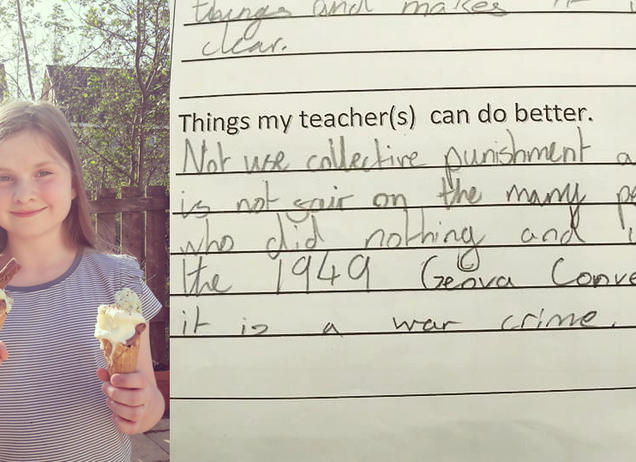 things and makes it i
clear.
Things my teacher(s) can do better.
Not use collective punishment a
is not fair on the many pe
who did nothing and
the 1949 Geneva Conve
it is a war crime.